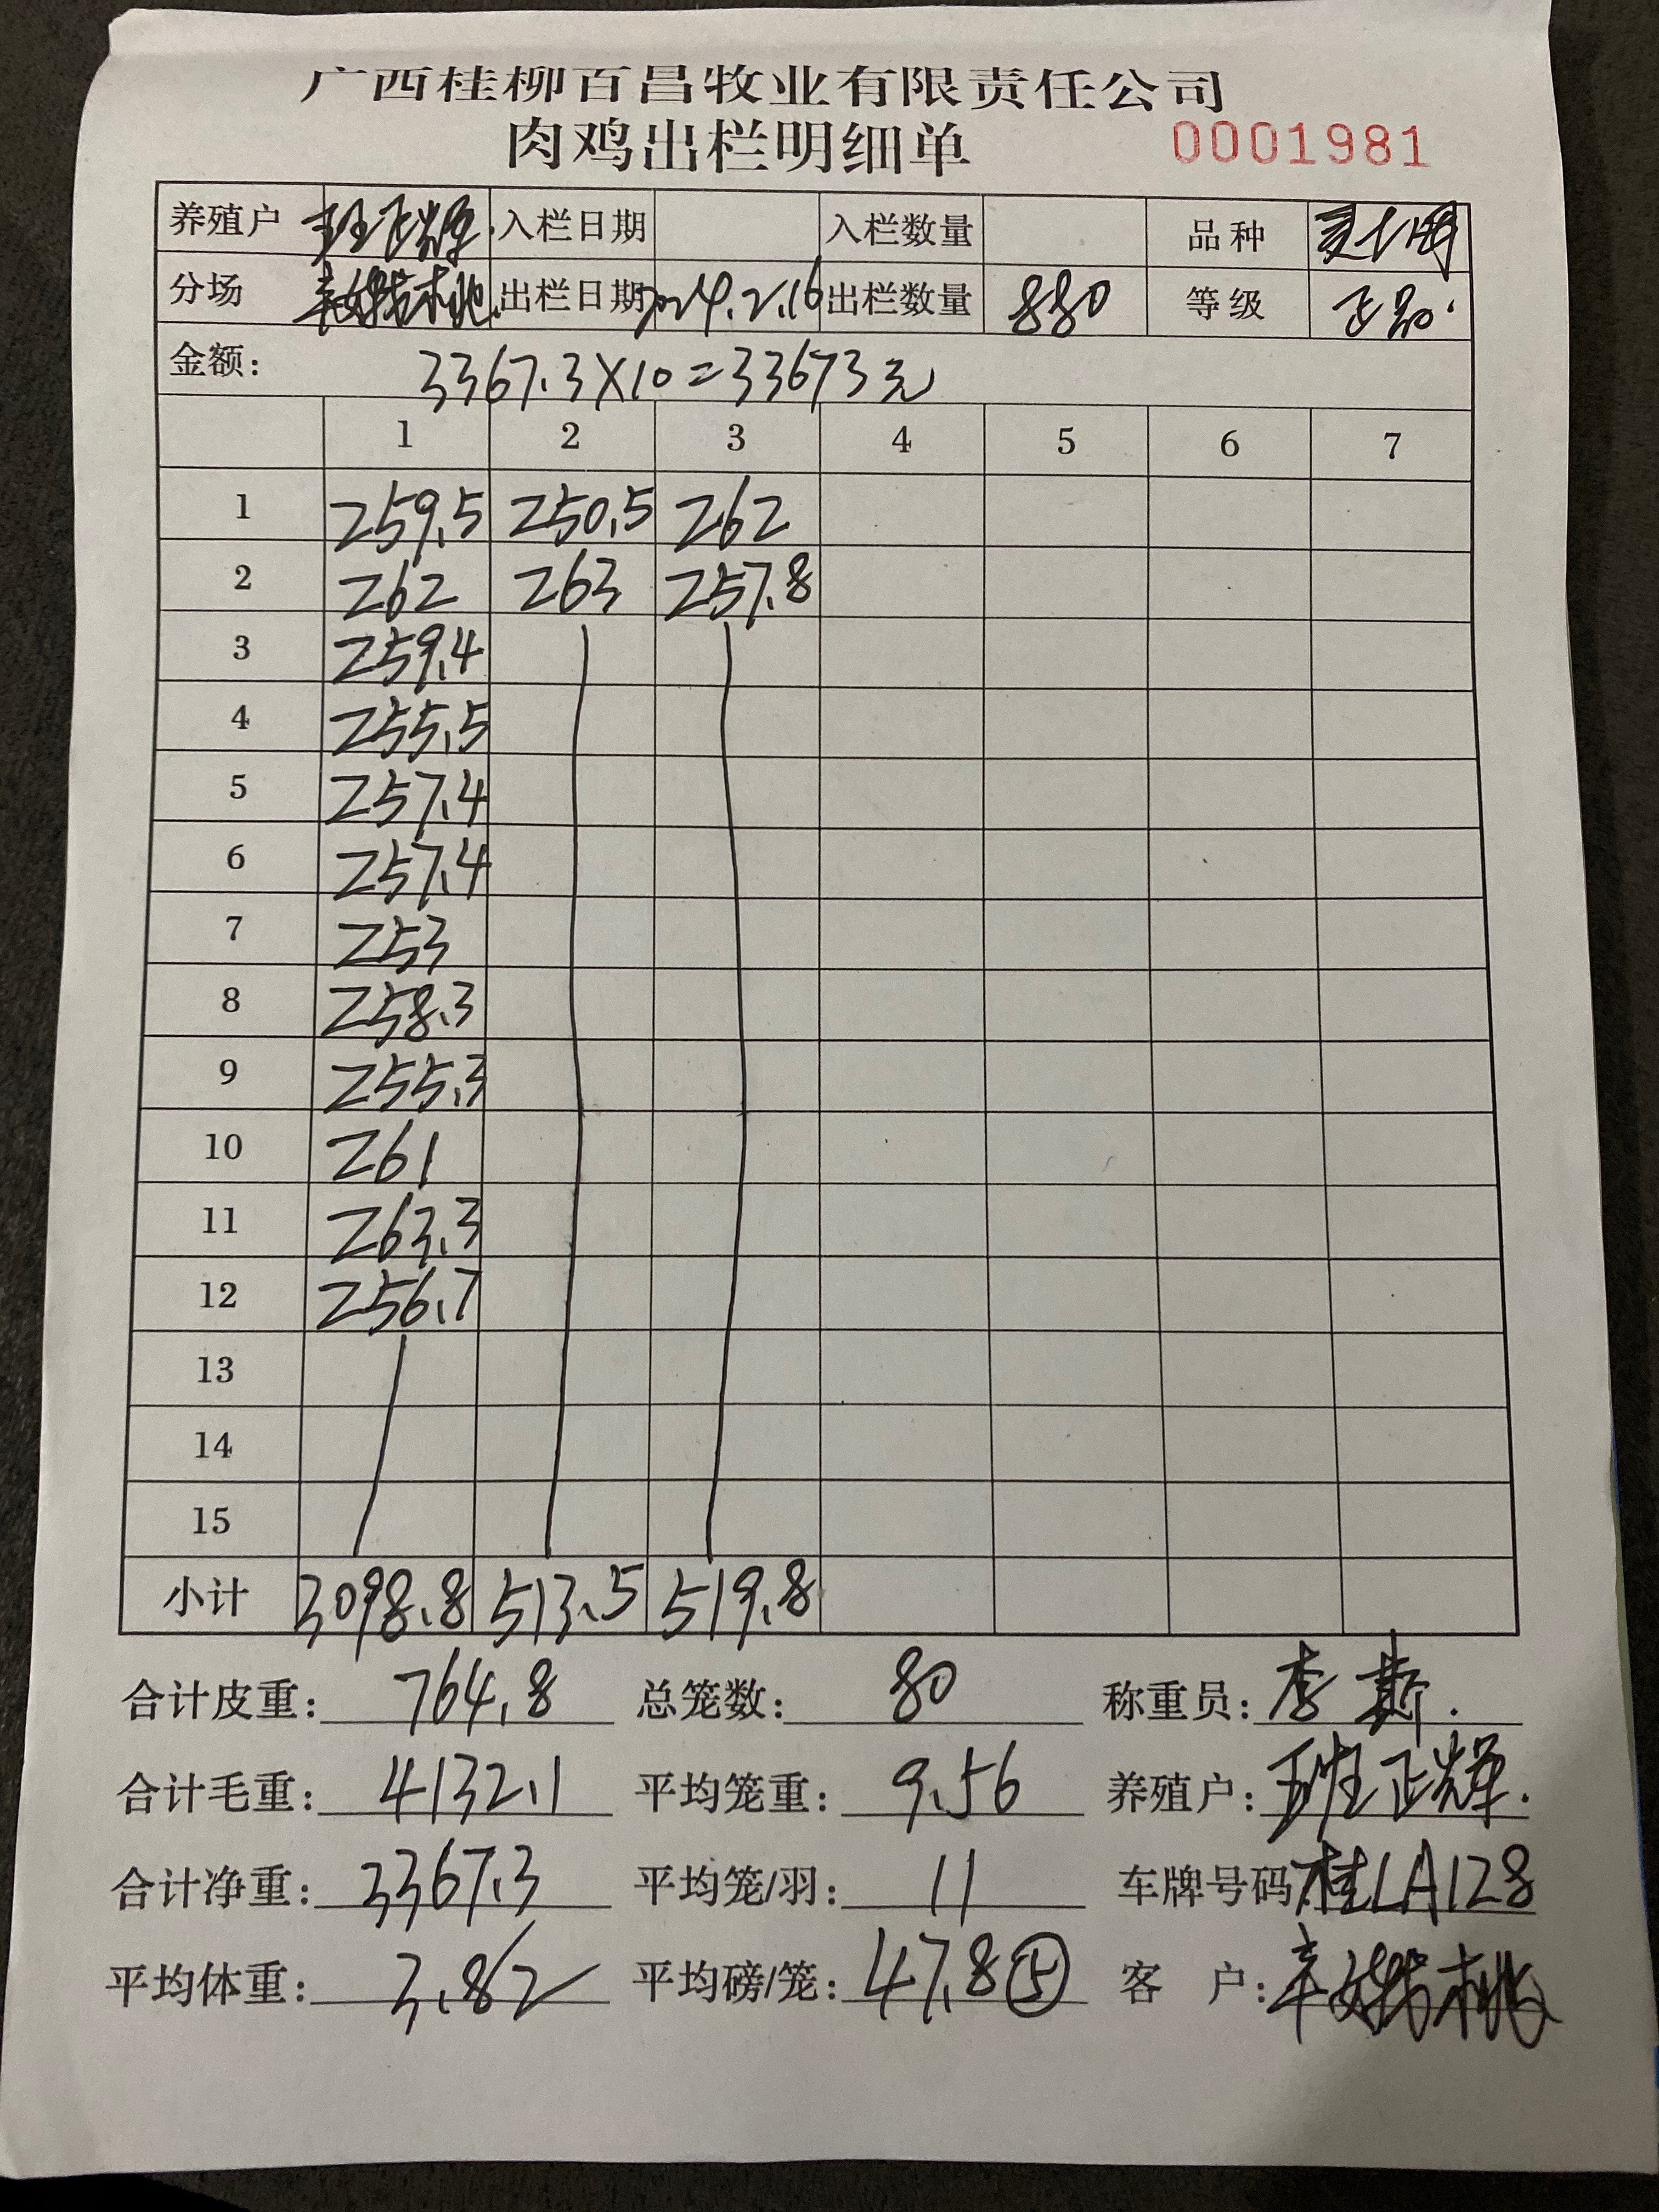 广西桂柳百昌牧业有限责任公司
肉鸡出栏明细单 0001981
养殖户 班正辉. 入栏日期 入栏数量 品种
分场 出栏日期 2024.2.16 出栏数量 880 等级 正品.
金额: 3367.3×10=33673元
1 2 3 4 5 6 7
1 259.5 250.5 262
2 262 263 257.8
3 259.4
4 255.5
5 257.4
6 257.4
7 253
8 258.3
9 255.3
10 261
11 263.3
12 256.7
13
14
15
小计 3098.8 513.5 519.8
合计皮重: 764.8 总笼数: 80 称重员: 李
合计毛重: 4132.1 平均笼重: 9.56 养殖户: 班正辉.
合计净重: 3367.3 平均笼/羽: 11 车牌号码: 桂LA128
平均体重: 3.82 平均磅/笼: 47.8⑤ 客 户: